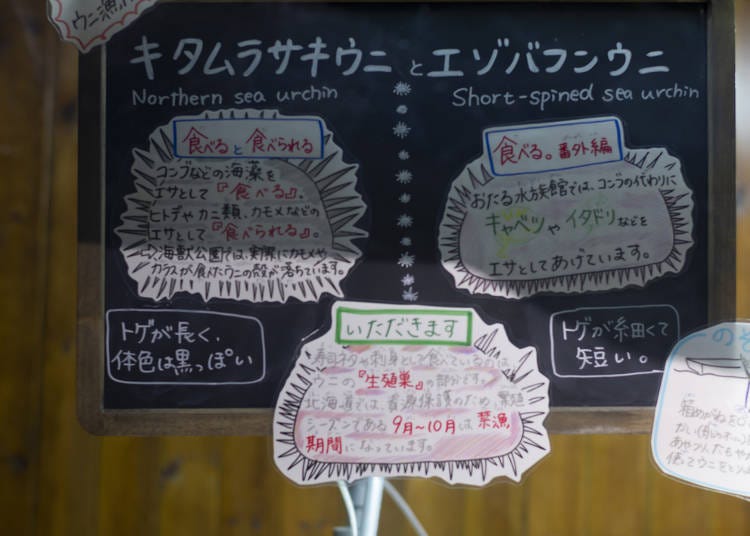 ウニ漁
キタムラサキウニとエゾバフンウニ
Northern sea urchin
Short-spined sea urchin
食べると食べられる
コンブなどの海藻を
エサとして『食べる』。
ヒトデやカニ類、カモメなどの
エサとして『食べられる』。
海獣公園では、実際にカモメや
カラスが食べたウニの殻が落ちています。
トゲが長く、
体色は黒っぽい
食べる。番外編
おたる水族館では、コンブの代わりに
キャベツやイタドリなどを
エサとしてあげています。
トゲが細くて
短い。
いただきます
寿司ネタや刺身として食べているのは
ウニの『生殖巣』の部分です。
北海道では、資源保護のため、繁殖
シーズンである9月〜10月は禁漁
期間になっています。
のぞ
箱めがねを
使ってウニをとり